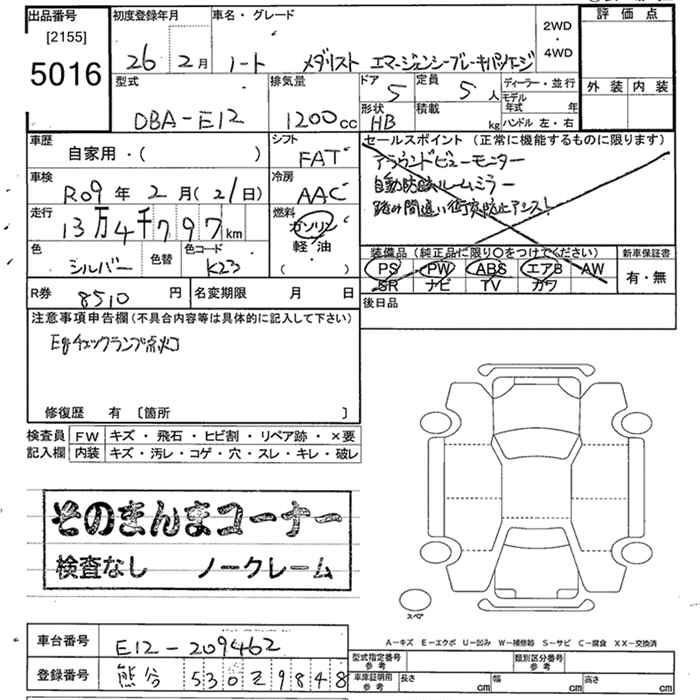 出品番号
[2155]
5016
初度登録年月
26年2月
車名・グレード
ノート メダリスト エマージェンシーブレーキパッケージ
2WD
・
4WD
評価点
外装 内装
型式
DBA-E12
排気量
1200cc
ドア
5
定員
5人
形状
HB
積載
kg
ディーラー・並行
モデル年式 年
ハンドル 左・右
車歴
自家用・( )
シフト
FAT
車検
R09年2月(21日)
冷房
AAC
走行
13万4千797km
燃料
ガソリン
軽/油
( )
色
シルバー
色替
色コード
K23
セールスポイント(正常に機能するものに限ります)
アラウンドビューモニター
自動防眩ルームミラー
踏み間違い衝突防止アシスト
装備品(純正品に限り○をつけてください)
PS PW ABS エアB AW
SR ナビ TV カワ
新車保証書
有・無
R券
8510円
名変期限 月 日
後日品
注意事項申告欄(不具合内容等は具体的に記入して下さい)
Egチェックランプ点灯
修復歴 有 〔箇所 〕
検査員 FW キズ・飛石・ヒビ割・リペア跡・×要
記入欄 内装 キズ・汚レ・コゲ・穴・スレ・キレ・破レ
そのまんまコーナー
検査なし ノークレーム
スペア
A-キズ E-エクボ U-凹み W-補修跡 S-サビ C-腐食 XX-交換済
車台番号
E12-209462
登録番号
530 9848
型式指定番号
参考
類別区分番号
参考
車庫証明用
参考
長さ cm
幅 cm
高さ cm